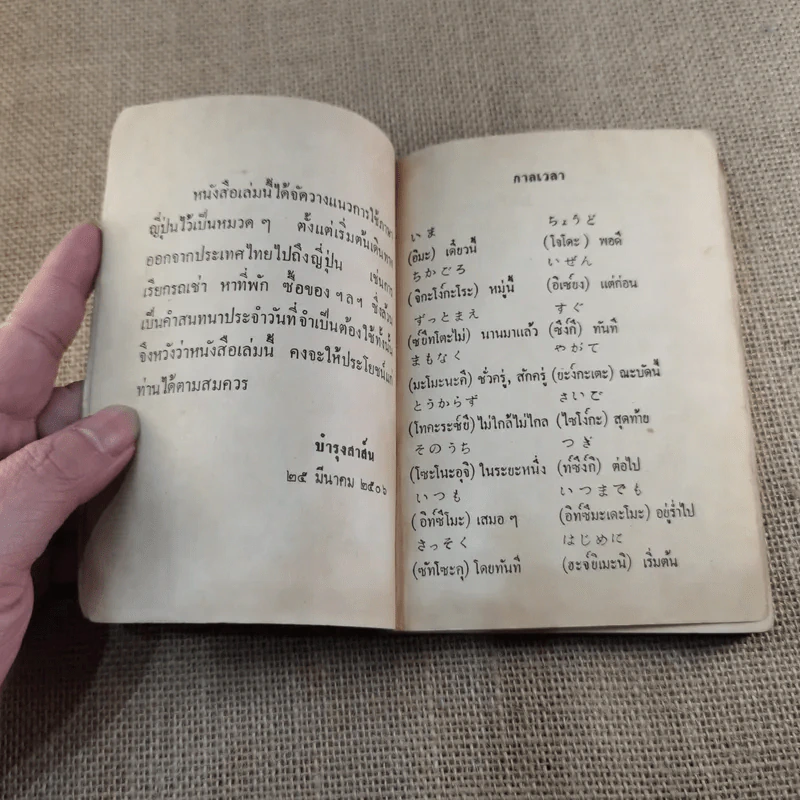 หนังสือเล่มนี้ได้จัดวางแนวการใช้ภาษา
ญี่ปุ่นไว้เป็นหมวด ๆ ตั้งแต่เริ่มต้นเดินทาง
ออกจากประเทศไทยไปถึงญี่ปุ่น เช่นการ
เรียกรถเช่า หาที่พัก ซื้อของ ฯลฯ ซึ่งล้วน
เป็นคำสนทนาประจำวันที่จำเป็นต้องใช้ทั้งนั้น
จึงหวังว่าหนังสือเล่มนี้ คงจะให้ประโยชน์แก่
ท่านได้ตามสมควร
บำรุงสาส์น
๒๕ มีนาคม ๒๕๐๖
กาลเวลา
いま ちょうど
(อิมะ) เดี๋ยวนี้ (โจโดะ) พอดี
ちかごろ いぜん
(จิกะโง๎กะโระ) หมู่นี้ (อิเซ็ยง) แต่ก่อน
ずっとまえ すぐ
(ซ์ยึทโตะไม่) นานมาแล้ว (ซึ่งกึ) ทันที
まもなく やがて
(มะโมะนะคึ) ชั่วครู่, สักครู่ (ยะง์กะเตะ) ณะบัดนี้
とうからず さいご
(โทคะระซ์ยึ) ไม่ใกล้ไม่ไกล (ไซโง๎กะ) สุดท้าย
そのうち つぎ
(โซะโนะอุจิ) ในระยะหนึ่ง (ท์ซึงกิ) ต่อไป
いつも いつまでも
(อิท์ซึโมะ) เสมอ ๆ (อิท์ซึมะเดะโมะ) อยู่ร่ำไป
さっそく はじめに
(ซัทโซะคุ) โดยทันที (ฮะจ์ยิเมะนิ) เริ่มต้น